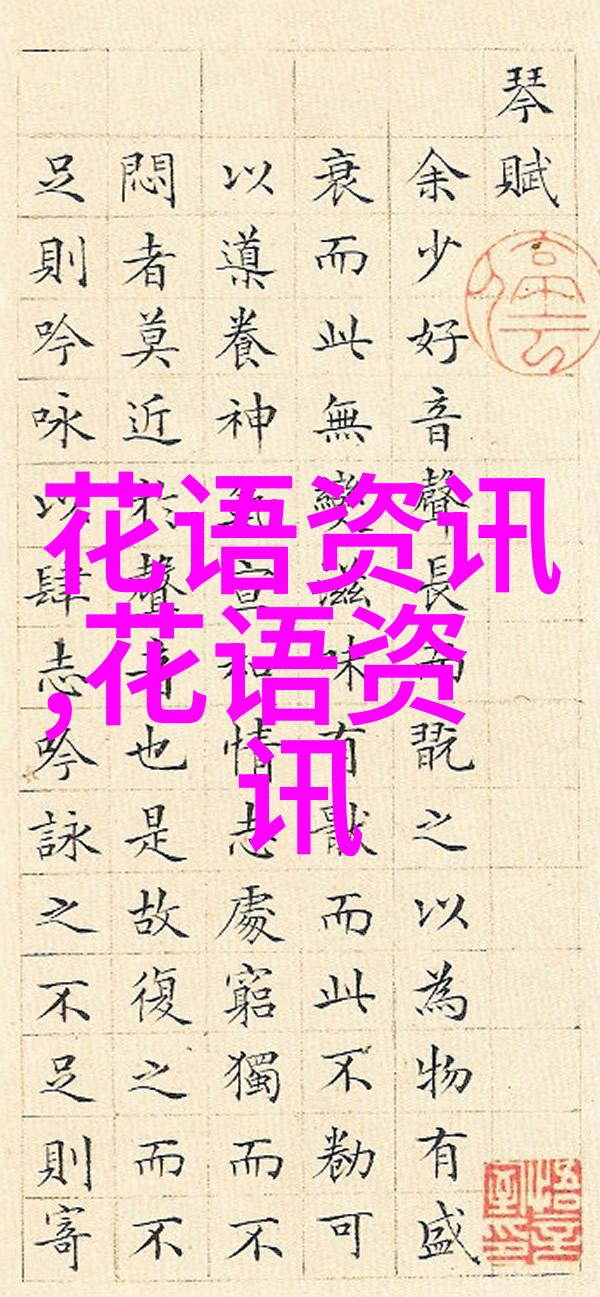 琴賦
余少好音聲長而翫之以為物有盛
衰而此無變滋味有厭而此不勌可
以導養神氣宣和情志處窮獨而不
悶者莫近於聲音也是故復之而不
足則吟咏以肆志吟詠之不足則寄
花语资讯
,花语资
讯